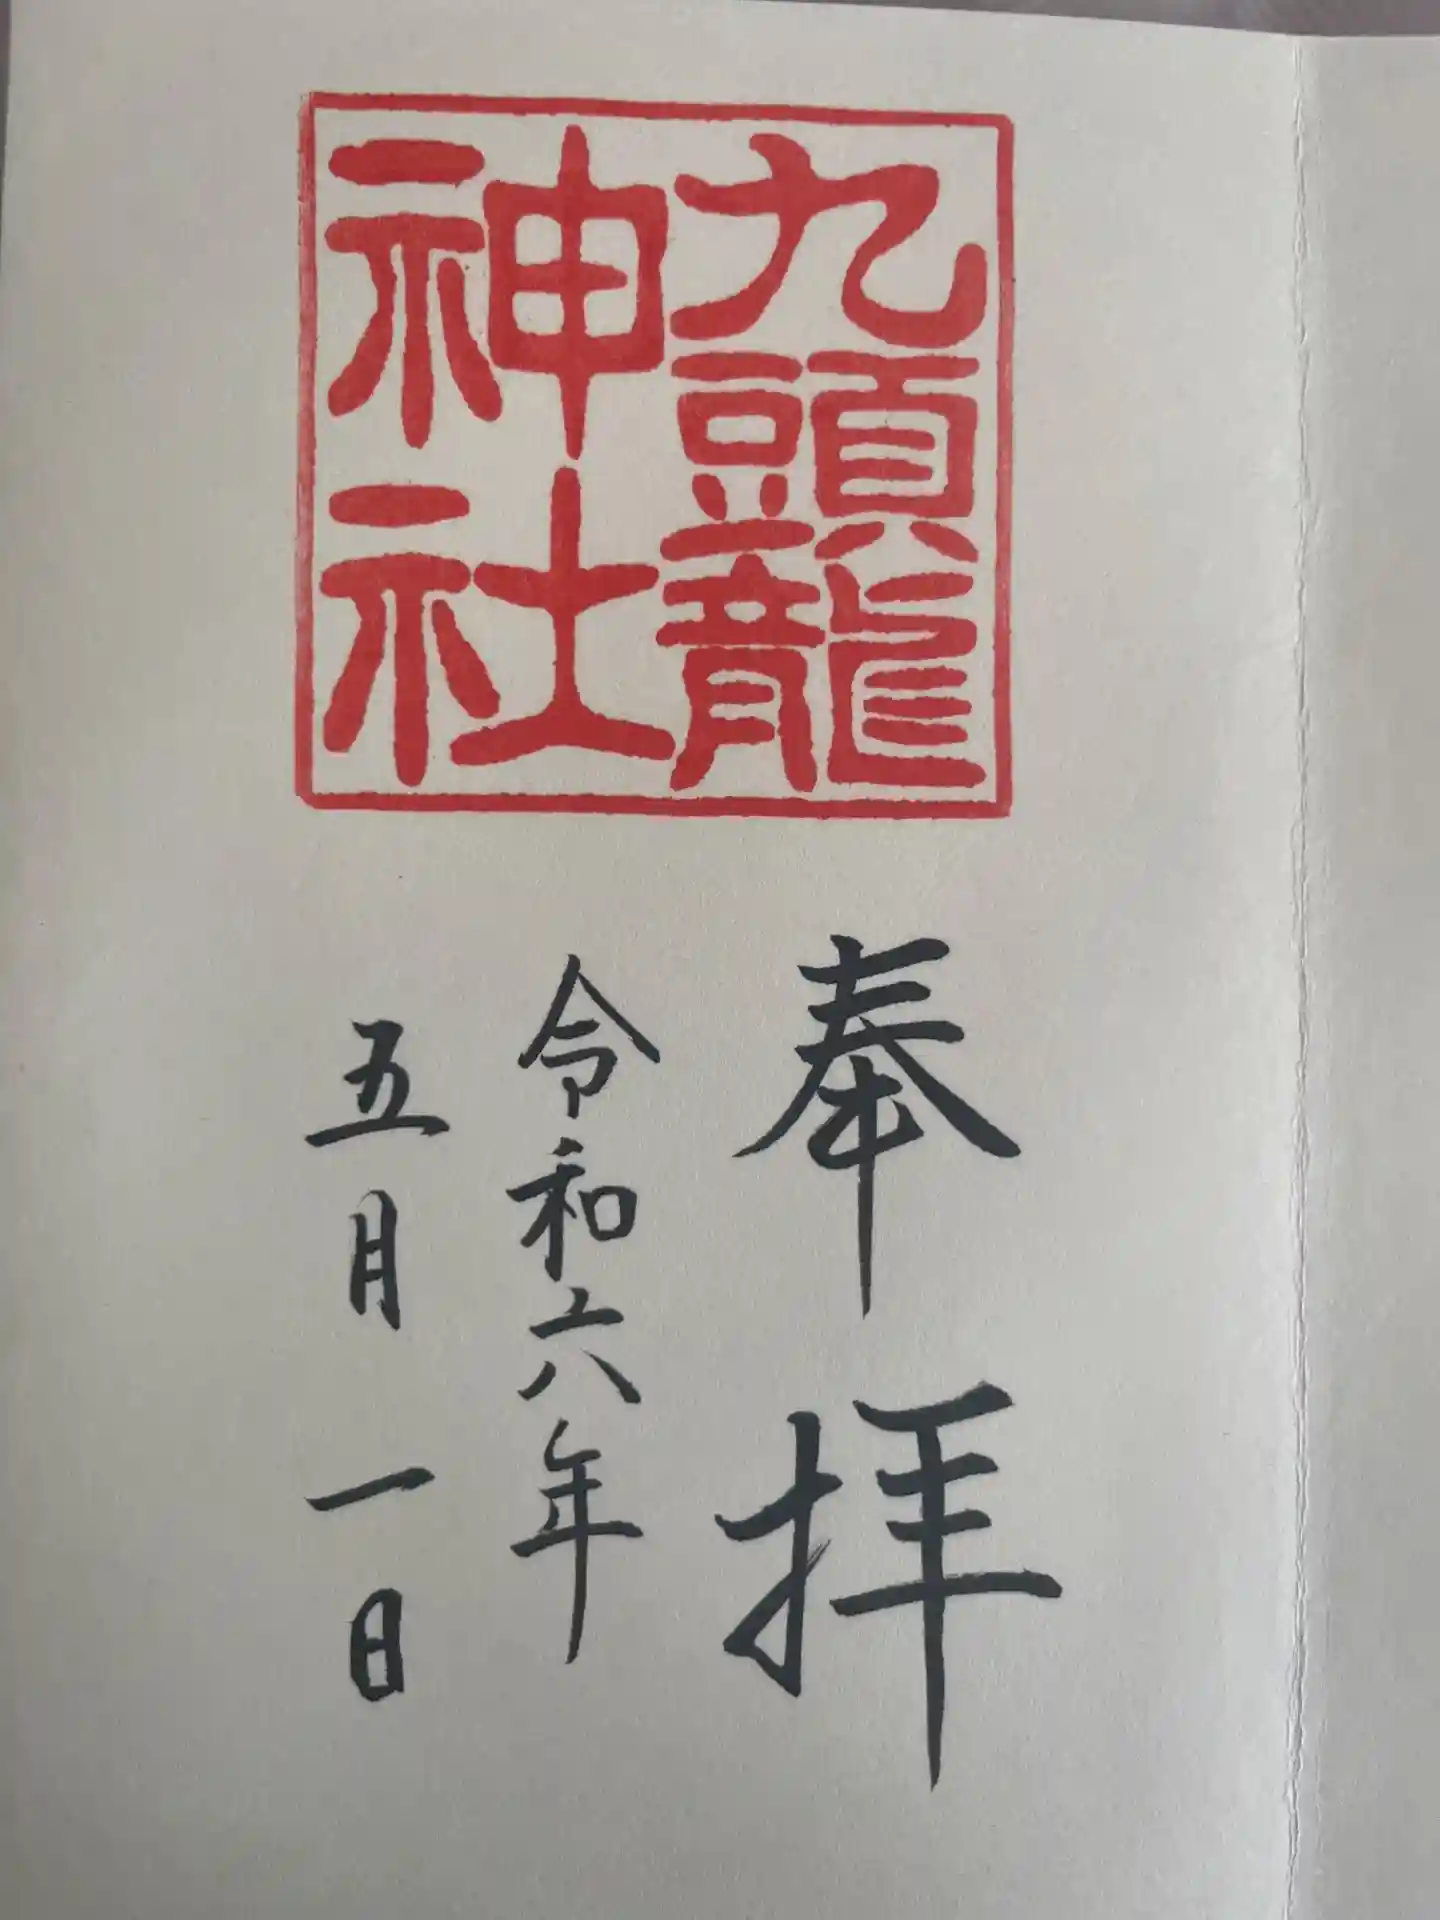 九頭龍
神社
奉拝
令和六年
五月一日